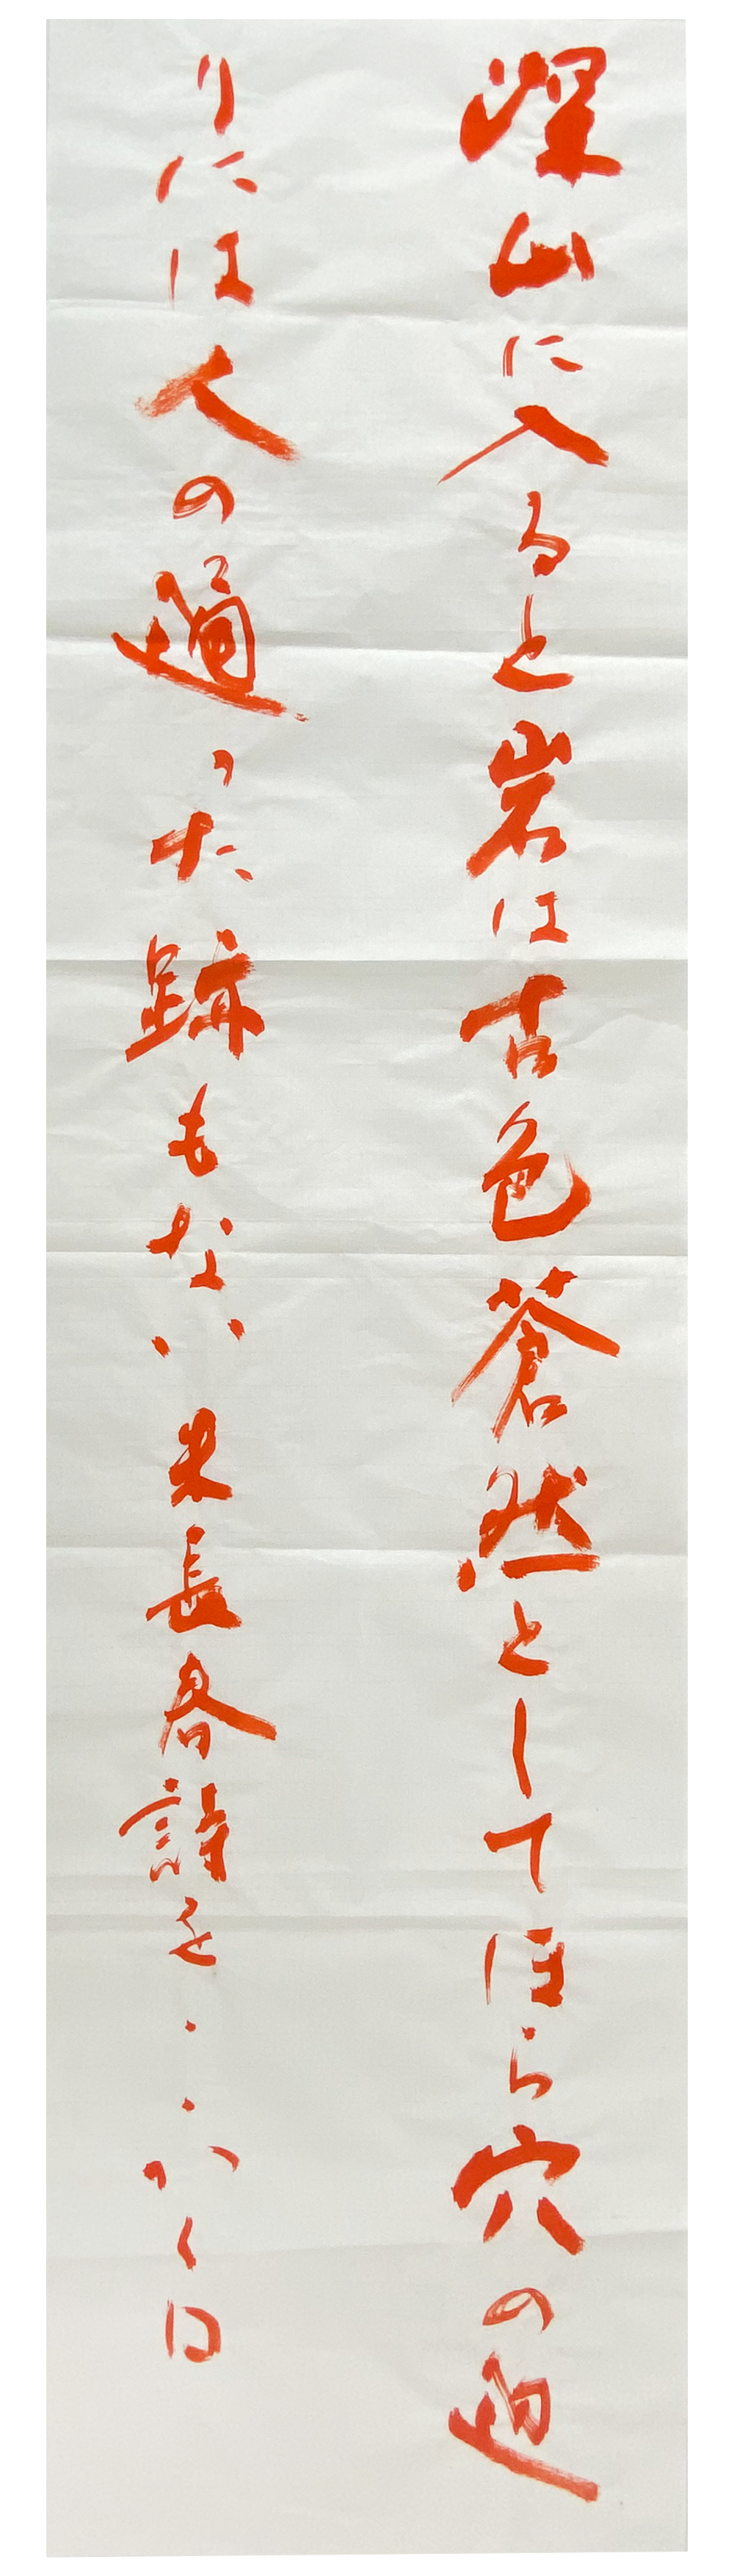 深山に入ると岩は古色蒼然としてほら穴の
りには人の通った跡もない 朱長春詩を